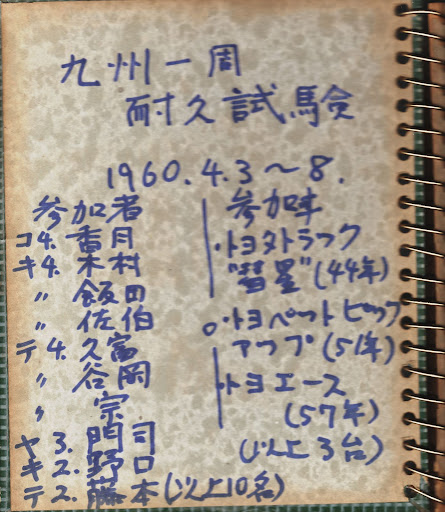 九州一周
耐久試験
1960.4.3〜8.
参加者
コ4. 香月
キ4. 木村
〃 飯田
〃 佐伯
テ4. 久富
〃 谷岡
〃 宗
ヤ3. 門司
キ2. 野口
テ2. 藤本(以上10名)
参加車
・トヨタトラック
"彗星"(44年)
○・トヨペットピック
アップ(51年)
・トヨエース
(57年)
(以上3台)